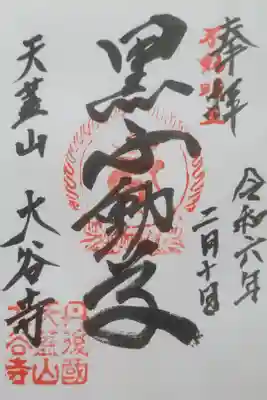 奉拝
令和六年
二月十日
黒不動尊
天蓋山
大谷寺
丹後國
天蓋山
大谷寺